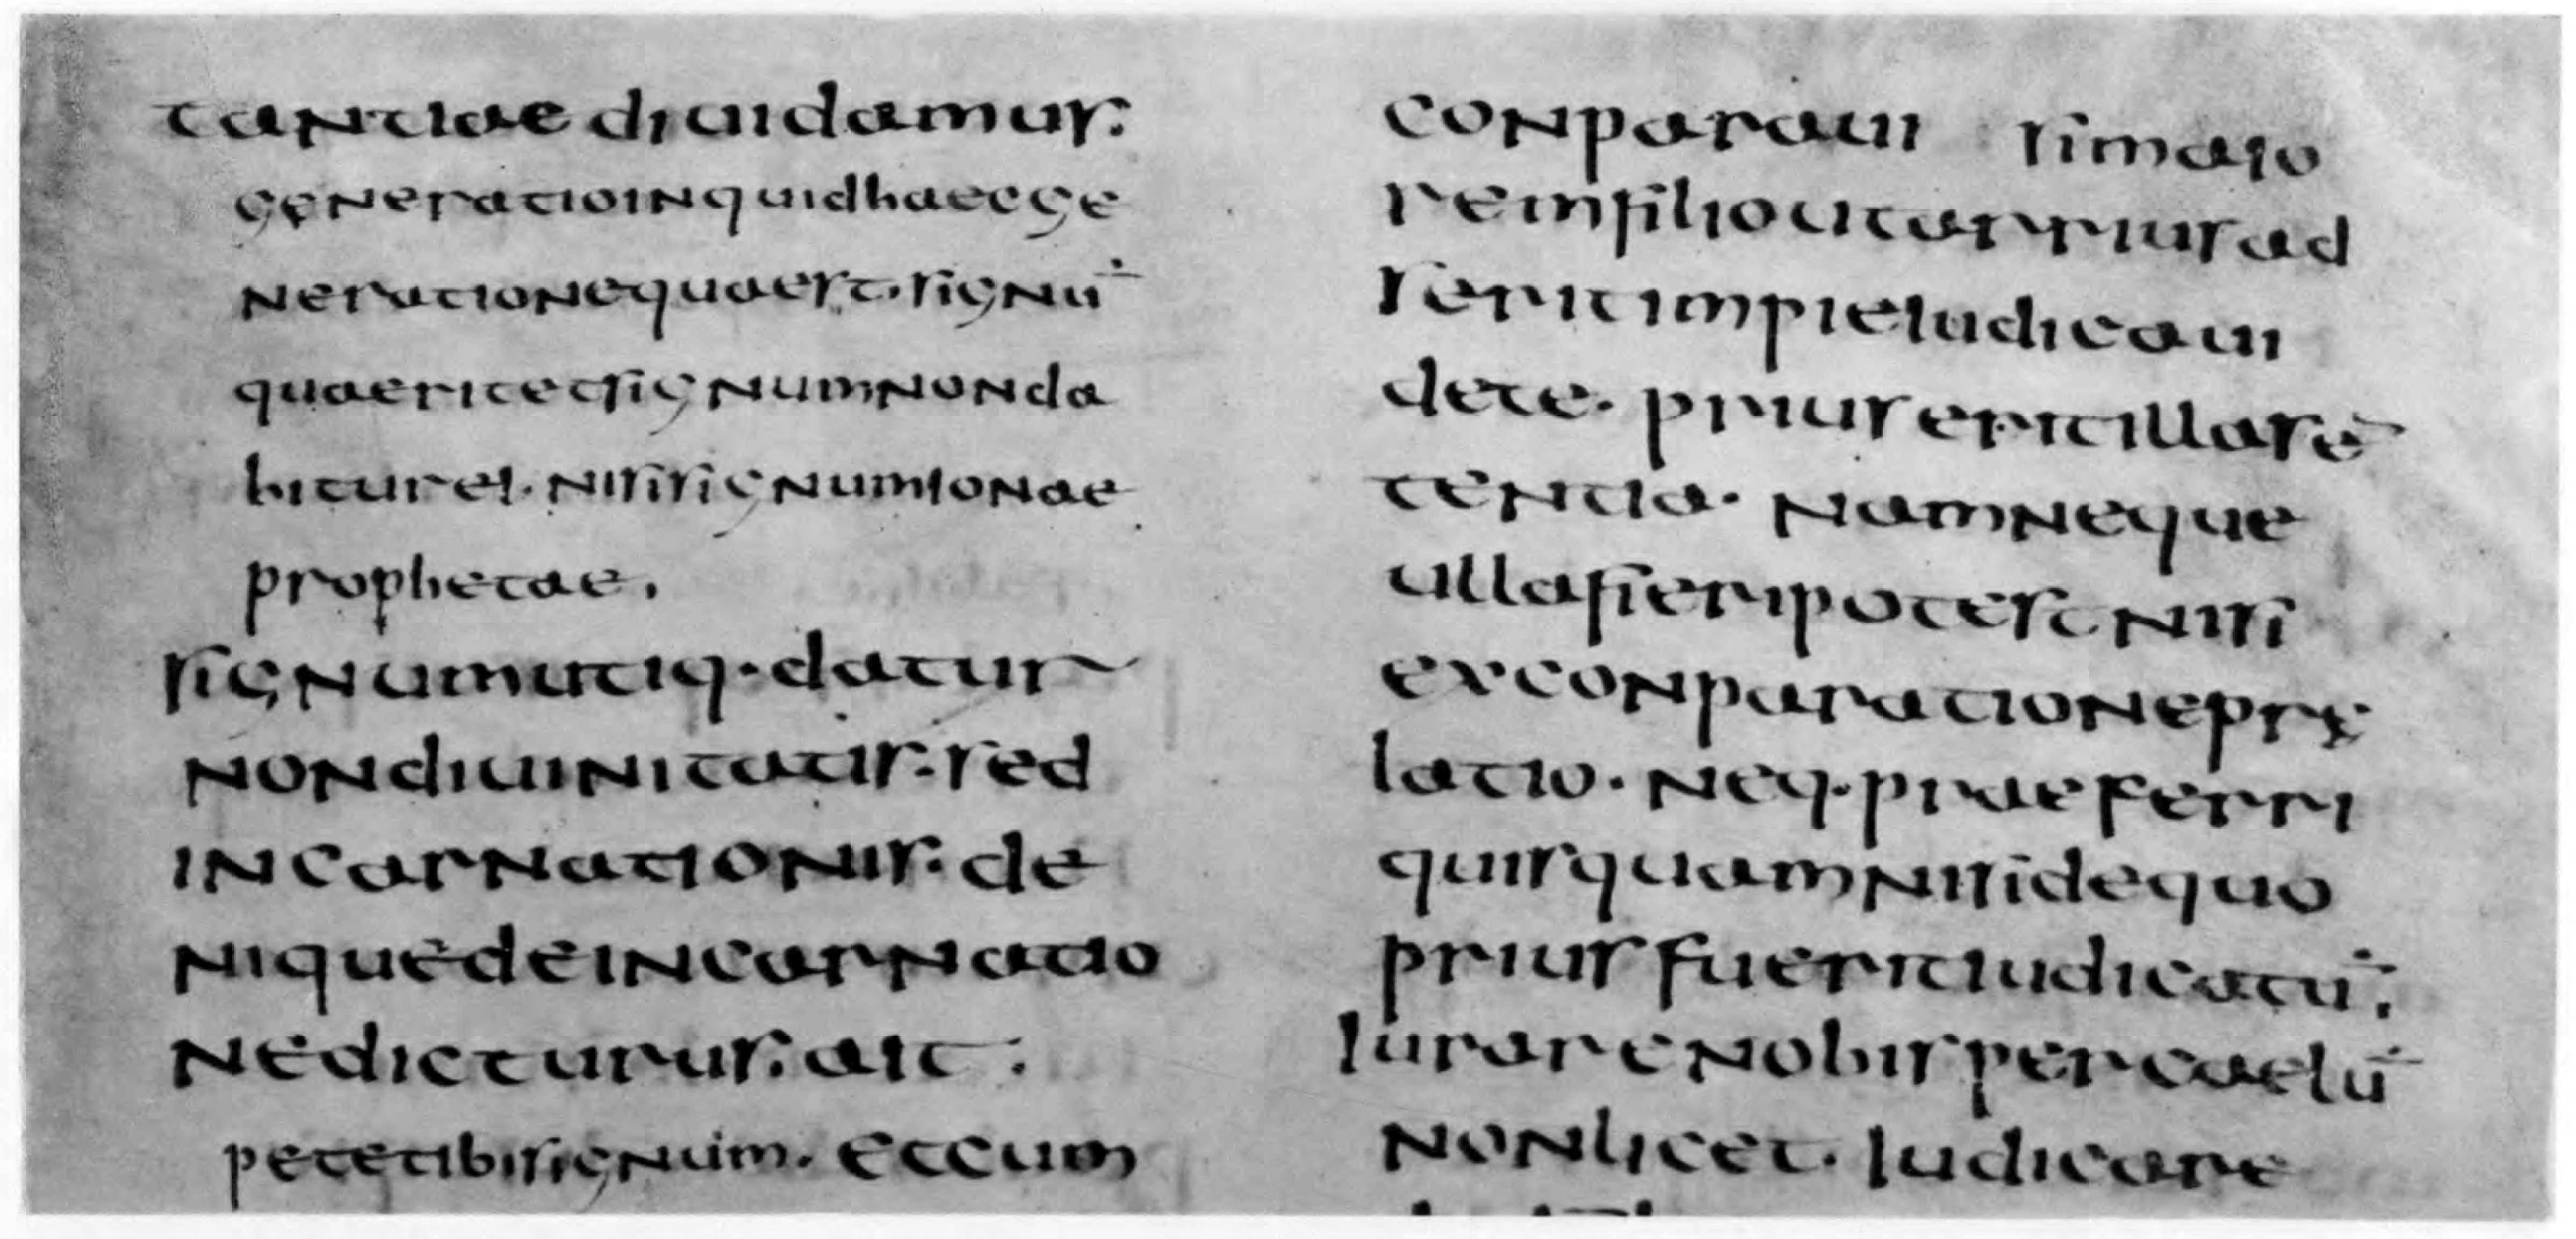 tantiae diuidamur.
generatio inquid haec ge
neratione quaest. signū
quaerit et signum non da
bitur ei. nisi signum ionae
prophetae.
signum utiq. datur
non diuinitatis. sed
incarnationis. de
nique de incarnatio
ne dicturus. ait.
pete tibi signum. et cum
conparaui si maio
rem filio ut arrius ad
serit impie iudicaui
de te. prius erit illa sē
tentia. nam neque
ulla fieri potest nisi
ex conparatione prę
latio. neq. praeferri
quisquam nisi de quo
prius fuerit iudicatū.
iurare nobis per caelū
non licet. iudicare